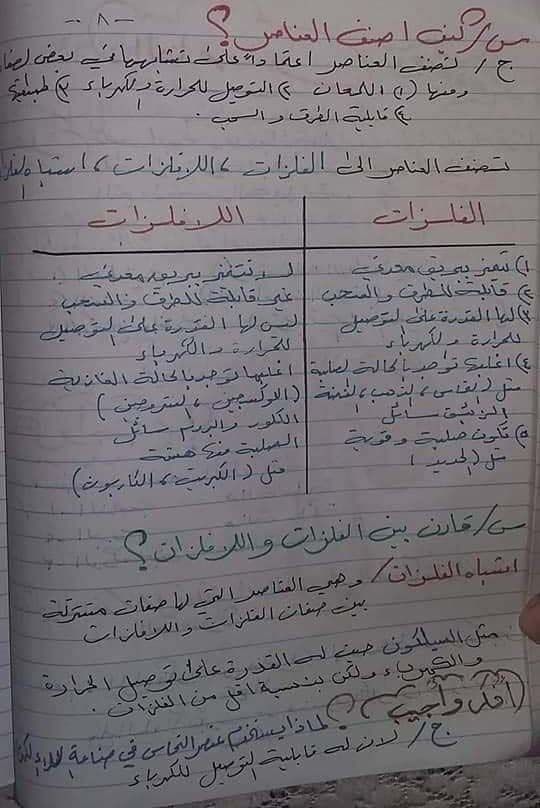 - ٨ -
س/ كيف اصنف العناصر؟
ج/ تصنف العناصر اعتماداً على تشابهها في بعض لصفا
ومنها (١) اللمعان ٢) التوصيل للحرارة والكهرباء ٣)
٤) قابلية الطرق والسحب.
تصنف العناصر الى الفلزات، اللافلزات، اشباه لفلزا
الفلزات
اللافلزات
١) تتميز ببريق معدني
٢) قابلة للطرق والسحب
٣) لها القدرة على لتوصيل
للحرارة والكهرباء
٤) اغلبها توجد بالحالة لصلبة
مثل (لنحاس، لذهب، لفضة
الزئبق سائل
٥) تكون صلبة وقوية
مثل (الحديد)
لا تتميز ببريق معدني
غير قابلة للطرق والسحب
ليس لها القدرة على لتوصيل
للحرارة والكهرباء
اغلبها توجد بالحالة الغازية
(الاوكسجين، لنتروجين)
الكلور والبروم سائل
الصلبة منها هشة
مثل (الكبريت، الكاربون)
س/ قارن بين الفلزات واللافلزات؟
اشباه الفلزات/ وهي العناصر التي لها صفات مشتركة
بين صفات الفلزات واللافلزات
مثل السيلكون حيث له القدرة على توصيل الحرارة
والكهرباء ولكن بنسبة اقل من الفلزات.
(أفكر وأجيب) لماذا يستخدم عنصر النحاس في صناعة
ج/ لان له قابلية التوصيل للكهرباء